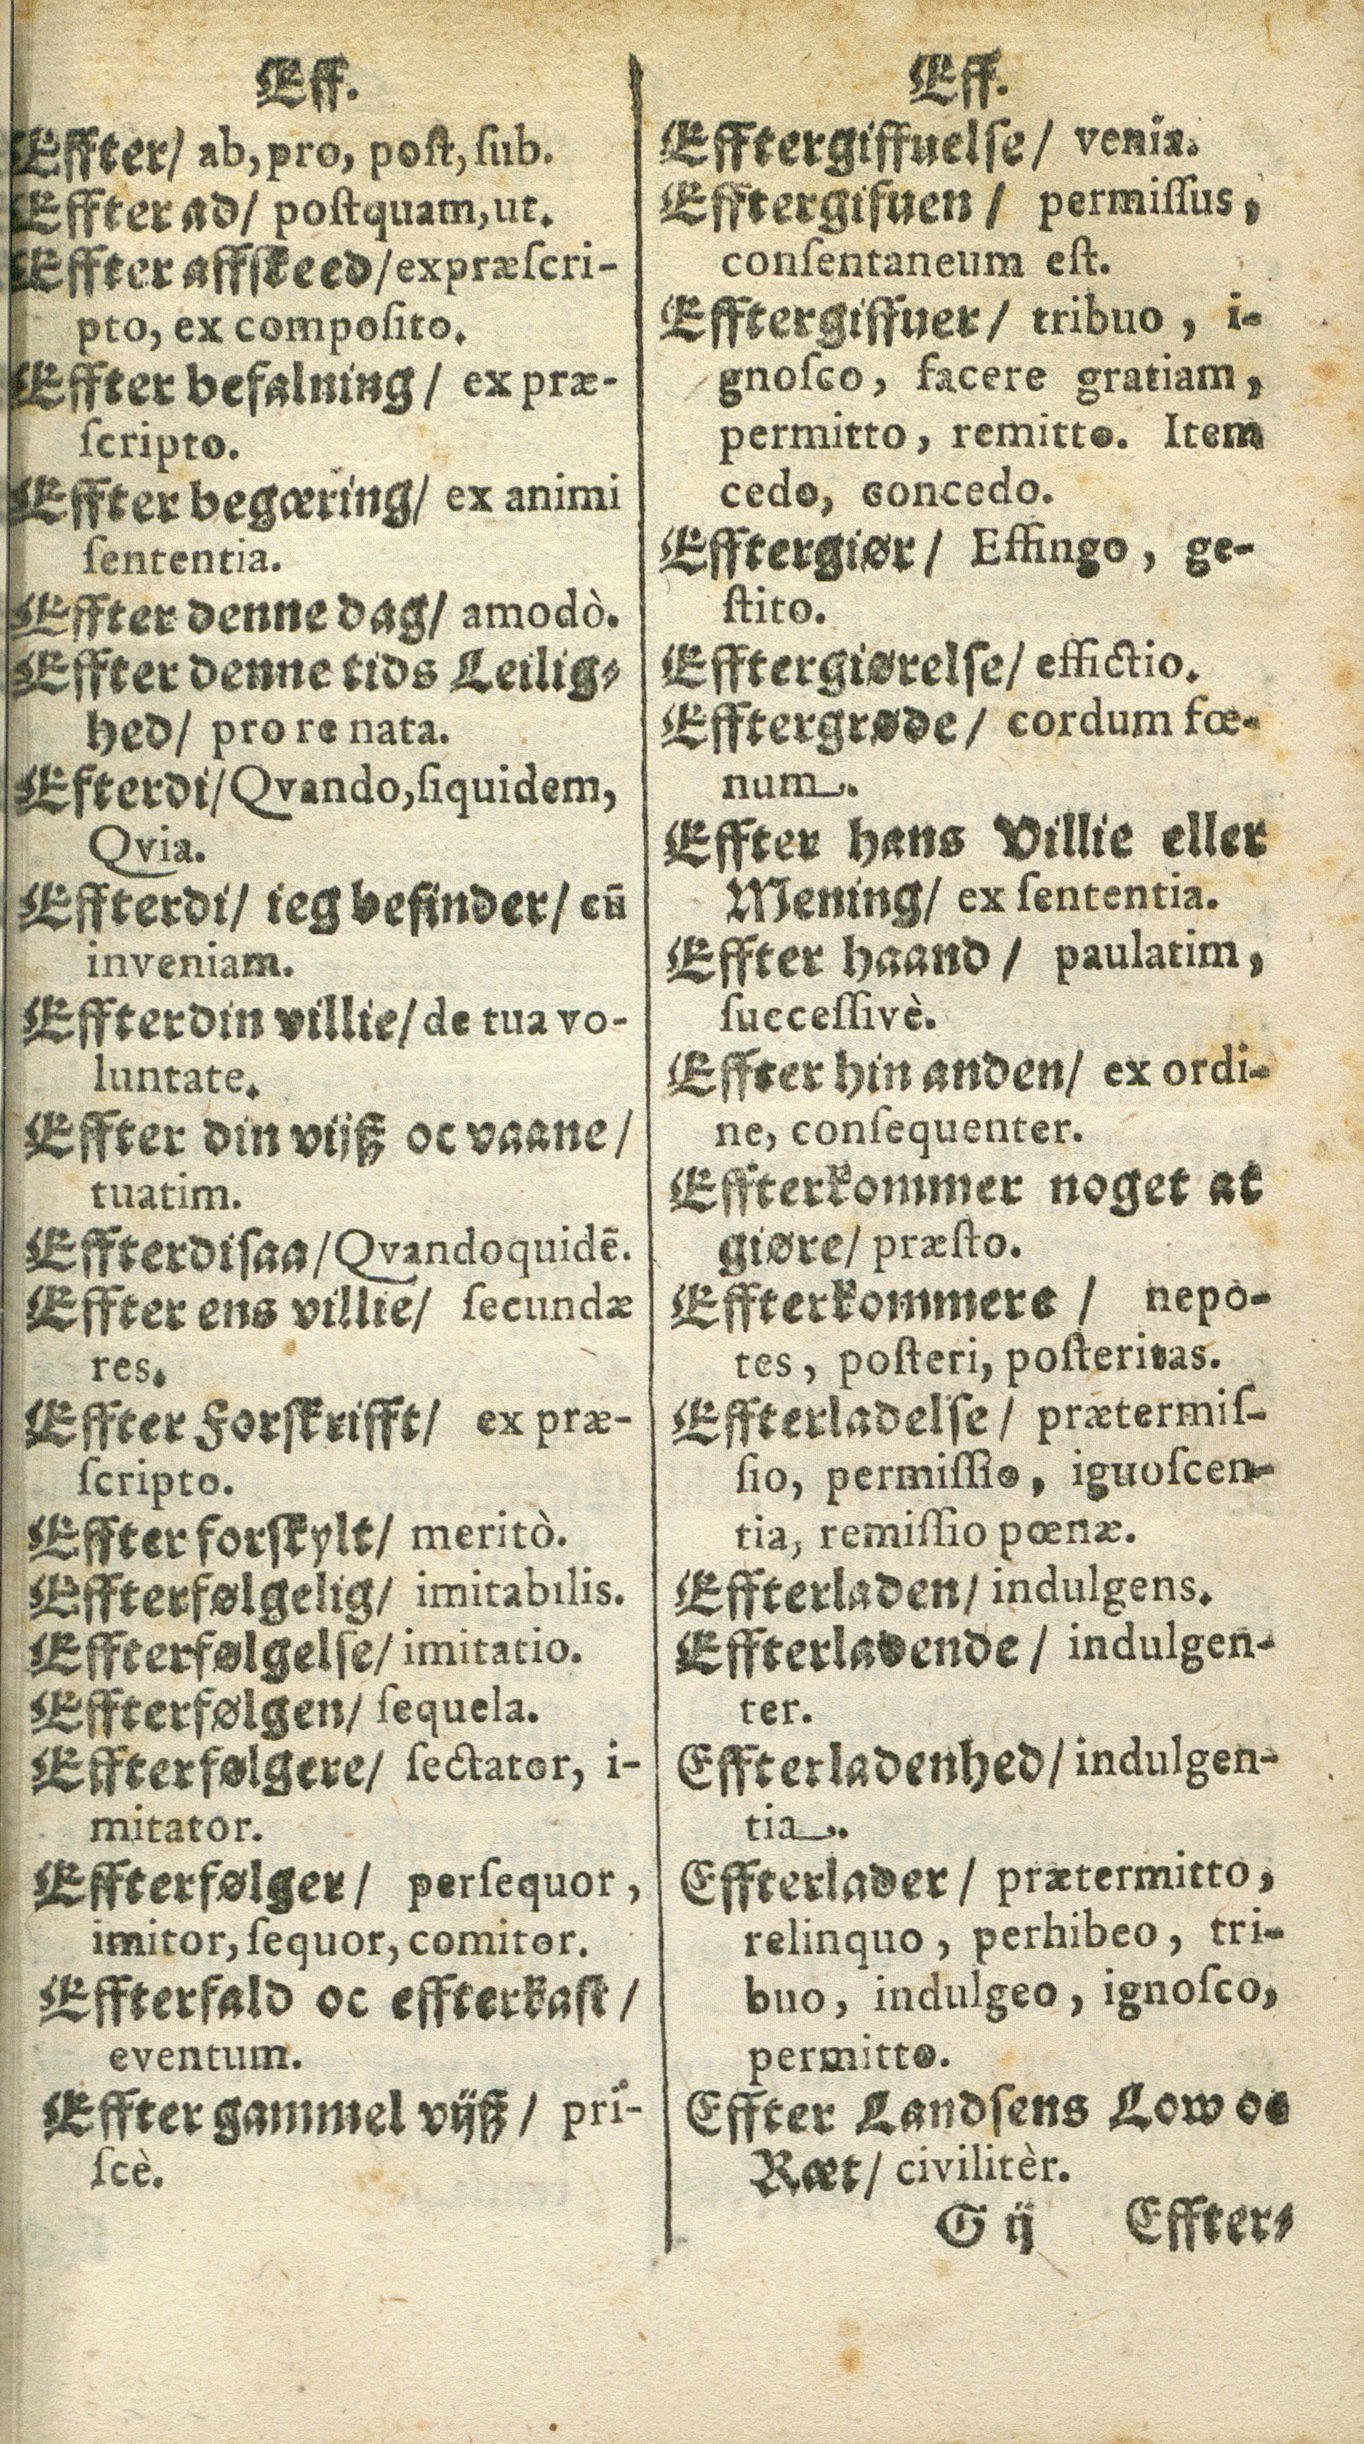 Eff.
Effter/ ab, pro, poſt, ſub.
Effter ad/ poſtquam, ut.
Effter affſkeed/ expræſcri-
pto, ex compoſito.
Effter befalning/ ex præ-
ſcripto.
Effter begæring/ ex animi
ſententia.
Effter denne dag/ amodò.
Effter denne tids Leilig-
hed/ pro re nata.
Efterdi/ Qvando, ſiquidem,
Qvia.
Effterdi/ ieg befinder/ cū
inveniam.
Effter din villie/ de tua vo-
luntate.
Effter din vijß oc vaane/
tuatim.
Effterdiſaa/ Qvandoquidē.
Effter ens villie/ ſecundæ
res.
Effter Forſkrifft/ ex præ-
ſcripto.
Effter forſkylt/ meritò.
Effterfølgelig/ imitabilis.
Effterfølgelſe/ imitatio.
Effterfølgen/ ſequela.
Effterfølgere/ ſectator, i-
mitator.
Effterfølger/ perſequor,
imitor, ſequor, comitor.
Effterfald oc effterkaſt/
eventum.
Effter gammel vijß/ pri-
ſcè.
Eff.
Efftergiffuelſe/ venia.
Efftergifuen/ permiſſus,
conſentaneum eſt.
Efftergiffuer/ tribuo, i-
gnoſco, facere gratiam,
permitto, remitto. Item
cedo, concedo.
Efftergiør/ Effingo, ge-
ſtito.
Efftergiørelſe/ effictio.
Efftergrøde/ cordum fœ-
num.
Effter hans Villie eller
Mening/ ex ſententia.
Effter haand/ paulatim,
ſucceſſivè.
Effter hin anden/ ex ordi-
ne, conſequenter.
Effterkommer noget at
giøre/ præſto.
Effterkommere/ nepo-
tes, poſteri, poſteritas.
Effterladelſe/ prætermiſ-
ſio, permiſſio, iguoſcen-
tia, remiſſio pœnæ.
Effterladen/ indulgens.
Effterladende/ indulgen-
ter.
Effterladenhed/ indulgen-
tia.
Effterlader/ prætermitto,
relinquo, perhibeo, tri-
buo, indulgeo, ignoſco,
permitto.
Effter Landſens Low oc
Ræt/ civilitèr.
G ij Effter-